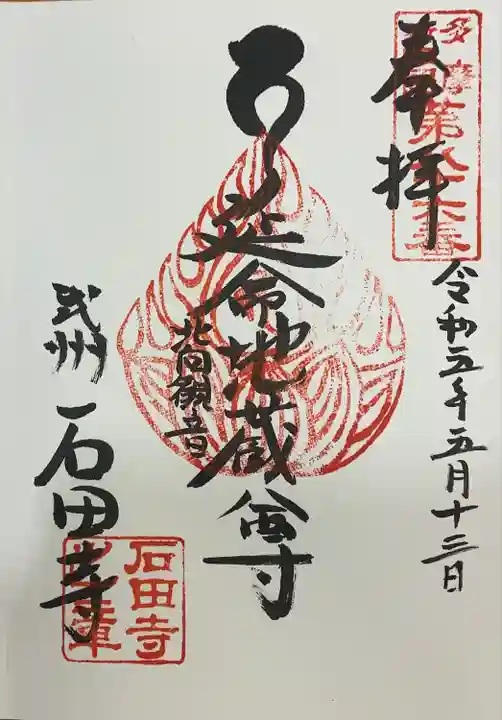 奉拝
多摩
第八十六番
令和五年五月十三日
延命地蔵尊
北向観音
武州
石田寺
石田寺
章